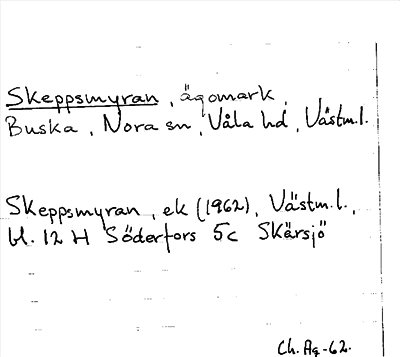 Skeppsmyran, ägomark,
Buska, Nora sn, Våla hd, Västm.l.
Skeppsmyran, ek (1962), Västm.l.,
bl. 12 H Söderfors 5c Skärsjö
Ch. Ag -62.